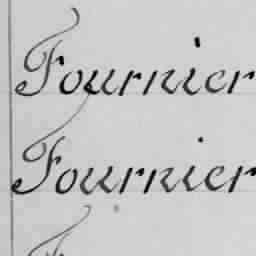 Fournier
Fournier